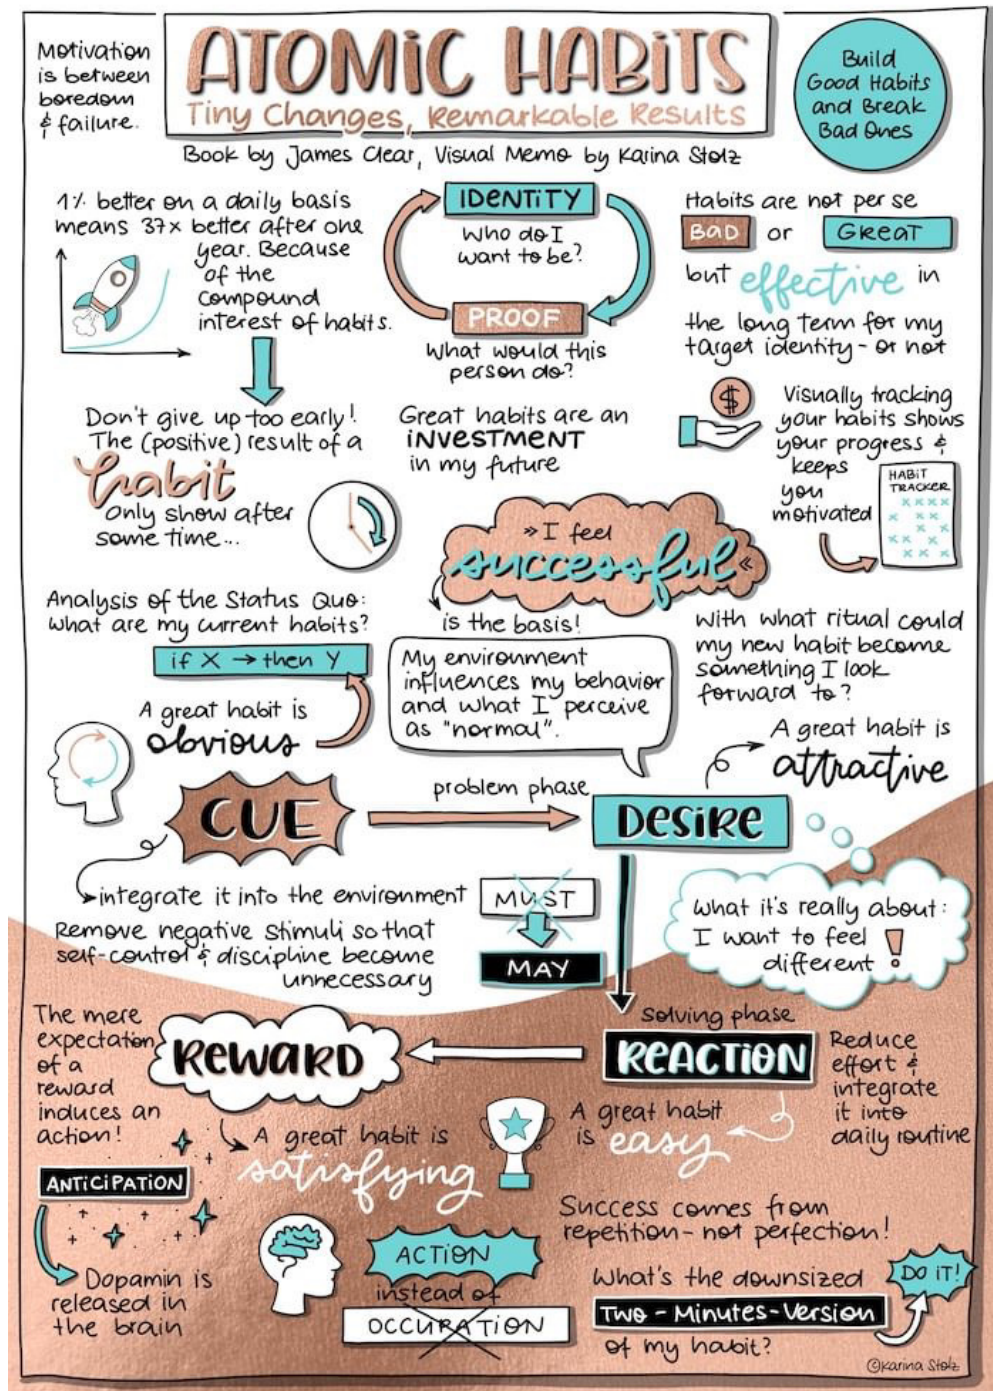 Motivation
is between
boredom
& failure.
ATOMIC HABITS
Tiny Changes, Remarkable Results
Book by James Clear, Visual Memo by Karina Stolz
Build
Good Habits
and Break
Bad Ones
1% better on a daily basis
means 37x better after one
year. Because
of the
compound
interest of habits.
IDENTITY
Who do I
want to be?
PROOF
What would this
person do?
Habits are not per se
BAD or GREAT
but effective in
the long term for my
target identity - or not
Don't give up too early!
The (positive) result of a
habit
only show after
some time...
Great habits are an
INVESTMENT
in my future
$
Visually tracking
your habits shows
your progress &
keeps
you
motivated
HABIT
TRACKER
»I feel
successful«
is the basis!
Analysis of the Status Quo:
What are my current habits?
if X → then Y
A great habit is
obvious
My environment
influences my behavior
and what I perceive
as "normal".
With what ritual could
my new habit become
something I look
forward to?
A great habit is
attractive
CUE
problem phase
DESIRE
integrate it into the environment
Remove negative stimuli so that
self-control & discipline become
unnecessary
MUST
MAY
What it's really about:
I want to feel
different!
The mere
expectation
of a
reward
induces an
action!
REWARD
solving phase
REACTION
Reduce
effort &
integrate
it into
daily routine
A great habit is
satisfying
A great habit
is easy
ANTICIPATION
Dopamin is
released in
the brain
ACTION
instead of
OCCUPATION
Success comes from
repetition - not perfection!
What's the downsized
Two-Minutes-Version
of my habit?
DO IT!
©Karina Stolz